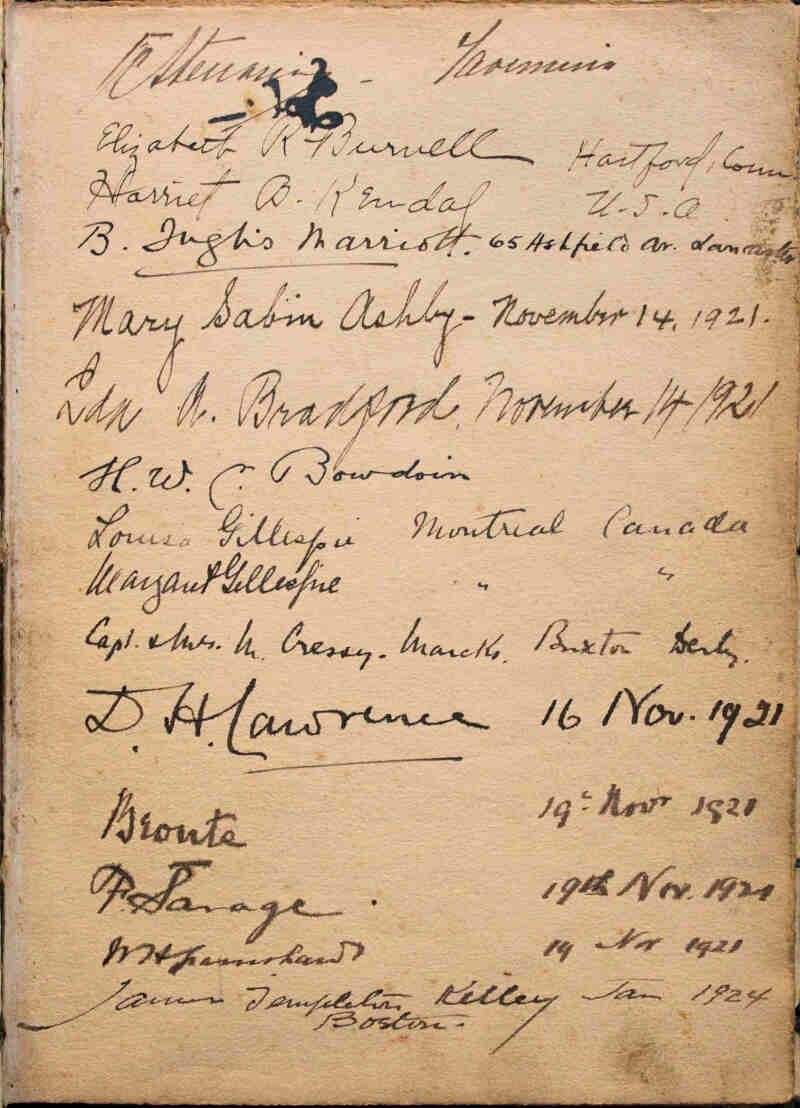 Taormina
Elizabeth R Burnell Hartford, Conn
Harriet B. Kendal U.S.A.
B. Inglis Marriott. 65 Ashfield Av. Lancaster
Mary Sabin Ashby - November 14, 1921.
Ida A. Bradford, November 14 1921
H. W. C. Bowdoin
Louisa Gillespie Montreal Canada
Margaret Gillespie " "
Capt. & Mrs. M. Cressy-Marcks. Buxton Derby.
D. H. Lawrence 16 Nov. 1921
Bronte 19th Novr 1921
P. Savage. 19th Nov. 1921
19 Nov 1921
James Templeton Kelley Jan 1924
Boston.